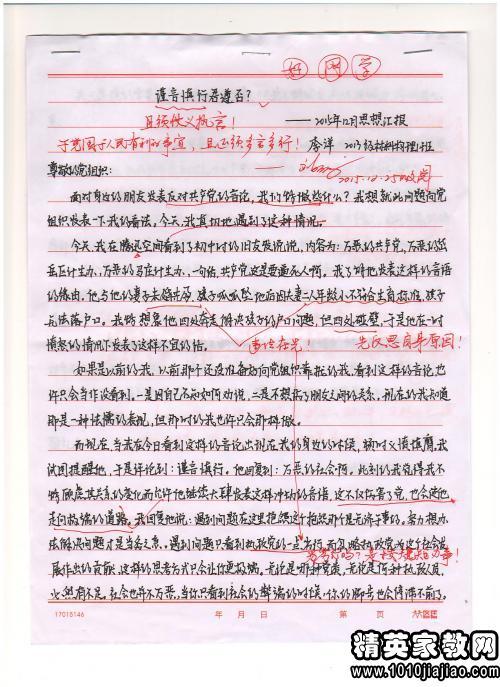 好同学
谨言慎行若遵否?
且须仗义执言!
——2015年12月思想汇报
于党国于人民有利的事宜,且还须多言多行!
李洋 2013级材料物理1班
2015.12.25
尊敬的党组织:
面对身边的朋友发表反对共产党的言论,我们能做些什么?我想就此问题向党
组织发表一下我的看法,今天,我真切地遇到了这种情况。
今天,我在腾讯空间看到了初中时的旧友发说说,内容为:万恶的共产党,万恶的
岳丘计生办、万恶的 计生办、一句话,共产党这是要逼死人啊。我了解他发表这样的言语
的缘由,他与他的妻子未婚先孕,孩子 他却因夫妻二人年龄小不符合生育标准,孩子
无法落户口。我能想象他四处奔走解决孩子的户口问题,但四处碰壁,于是他在一时
愤怒的情况下发表了这样不宜的话。
事情在先!
先反思自身原因!
如果是以前的我,以前那个还没准备好向党组织靠拢的我,看到这样的言论也
许只会当作没看到,一是因自己不知如何劝说,二是不想伤了朋友之间的关系。现在的我知道
那是一种怯懦的表现,但那时的我也许只会那样做。
而现在,当我在今日看到这样的言论出现在我的身边的时候,顿时义愤填膺,我
试图提醒他,于是评论到:谨言慎行。他回复到:万恶的社会啊。此刻的我觉得我不
能顾虑其关系的变化而允许他继续大肆发表这样冲动的言语,这不仅伤害了党,也会使他
走向极端的道路。我回复他说:遇到问题在这里抱怨这个抱怨那个是无济于事的。努力想办
法解决问题才是当务之急。遇到问题只看到执政党的一点劣行,而忽略执政党为这个社会发
是按规矩办事!
展作出的贡献,这样的思考方式只会让你更极端。无论是哪种党派,无论是何种执政人员,
必然有不足,社会也并不万恶,当你只看到社会的弊端的时候,你的脚步也会停滞不前了。
17015146
年 月 日
第 页
精英家教网
www.1010jiajiao.com